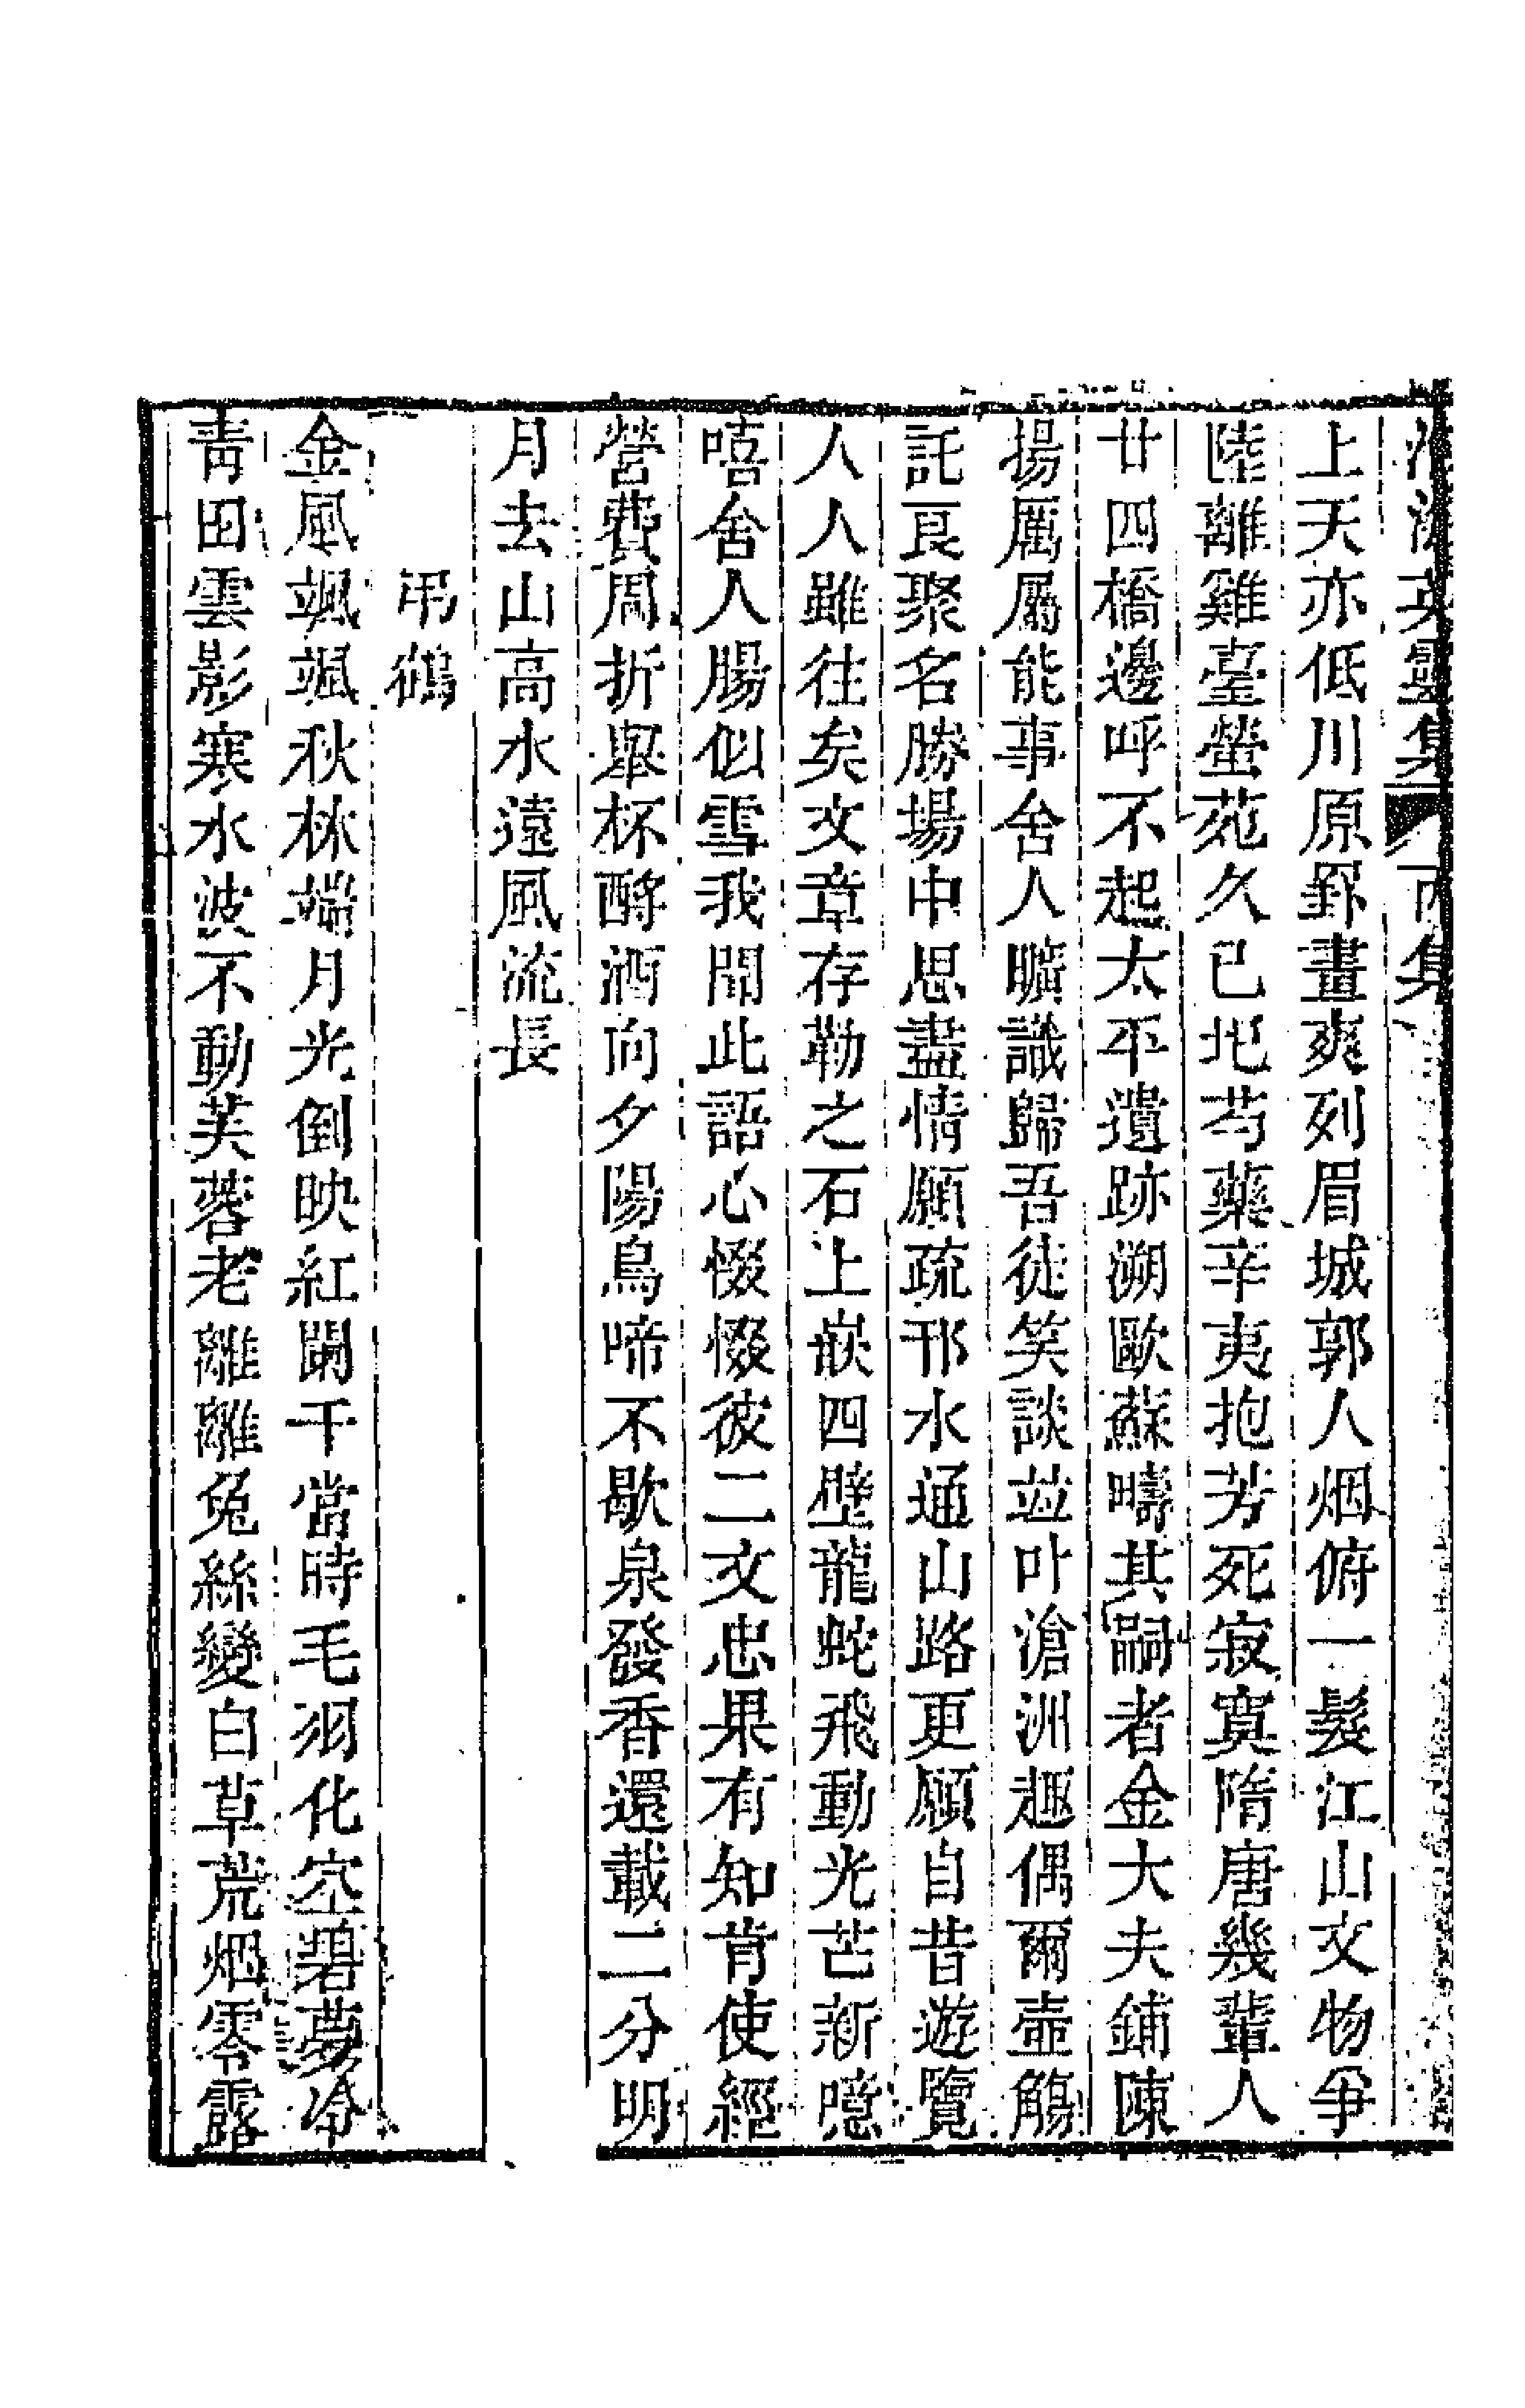 淮海英靈集 丙集
上天亦低川原郢畫爽列眉城郭人烟俯一髮江山文物爭
陸離雞臺螢苑久已圯芍藥辛夷抱芳死寂寞隋唐幾輩人
廿四橋邊呼不起太平遺跡溯歐蘇疇其嗣者金大夫鋪陳
揚厲屬能事舍人曠識歸吾徒笑談並叶滄洲趣偶爾壺觴
託良聚名勝場中思盡情願疏邗水通山路更願自昔遊覽
人人雖往矣文章存勒之石上嵌四壁龍蛇飛動光芒新噫
嘻舍人腸似雪我聞此語心惙惙彼二文忠果有知肯使經
營費周折舉杯酹酒向夕陽鳥啼不歇泉發香還載二分明
月去山高水遠風流長
弔鶴
金風颯颯秋林端月光倒映紅闌干當時毛羽化空碧夢冷
青田雲影寒水波不動芙蓉老離離兔絲變白草荒烟零露